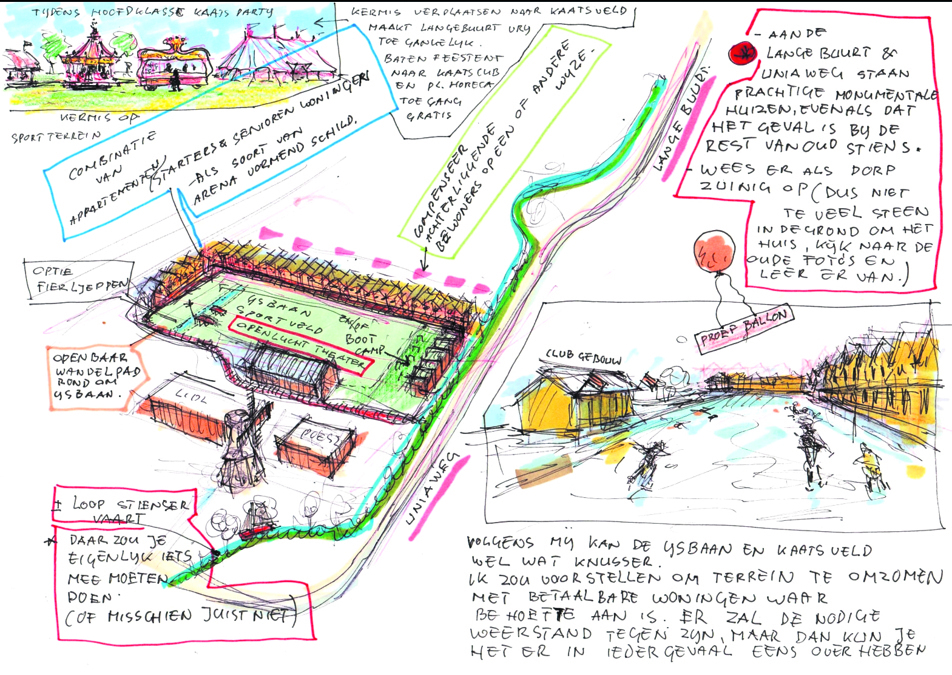 TIJDENS HOOFDKLASSE KAATS PARTY
KERMIS OP
SPORTTERREIN
KERMIS VERPLAATSEN NAAR KAATSVELD
MAAKT LANGEBUURT VRIJ
TOEGANKELIJK.
BATEN FEESTTENT
NAAR KAATSCLUB
EN PL. HORECA
TOEGANG
GRATIS
COMBINATIE
VAN
APPARTEMENTEN (STARTERS & SENIOREN WONINGEN)
- ALS
SOORT VAN
ARENA VORMEND SCHILD.
COMPENSEER
ACHTERLIGGENDE
BEWONERS OP EEN OF ANDERE
WIJZE.
LANGE BUURT
- AAN DE
LANGEBUURT &
UNIAWEG STAAN
PRACHTIGE MONUMENTALE
HUIZEN, EVENALS DAT
HET GEVAL IS BIJ DE
REST VAN OUD STIENS.
- WEES ER ALS DORP
ZUINIG OP (DUS NIET
TE VEEL STEEN
IN DE GROND OM HET
HUIS, KIJK NAAR DE
OUDE FOTO'S EN
LEER ER VAN.)
OPTIE
FIERLJEPPEN
IJSBAAN
SPORTVELD
OPENLUCHT THEATER
EN/OF
BOOT
CAMP
OPENBAAR
WANDELPAD
RONDOM
IJSBAAN.
LIDL
POIESZ
UNIAWEG
PROEF BALLON
CLUBGEBOUW
± LOOP STIENSER
VAART
* DAAR ZOU JE
EIGENLIJK IETS
MEE MOETEN
DOEN.
(OF MISSCHIEN JUIST NIET)
VOLGENS MIJ KAN DE IJSBAAN EN KAATSVELD
WEL WAT KNUSSER.
IK ZOU VOORSTELLEN OM TERREIN TE OMZOMEN
MET BETAALBARE WONINGEN WAAR
BEHOEFTE AAN IS. ER ZAL DE NODIGE
WEERSTAND TEGEN ZIJN, MAAR DAN KUN JE
HET ER IN IEDER GEVAAL EENS OVER HEBBEN